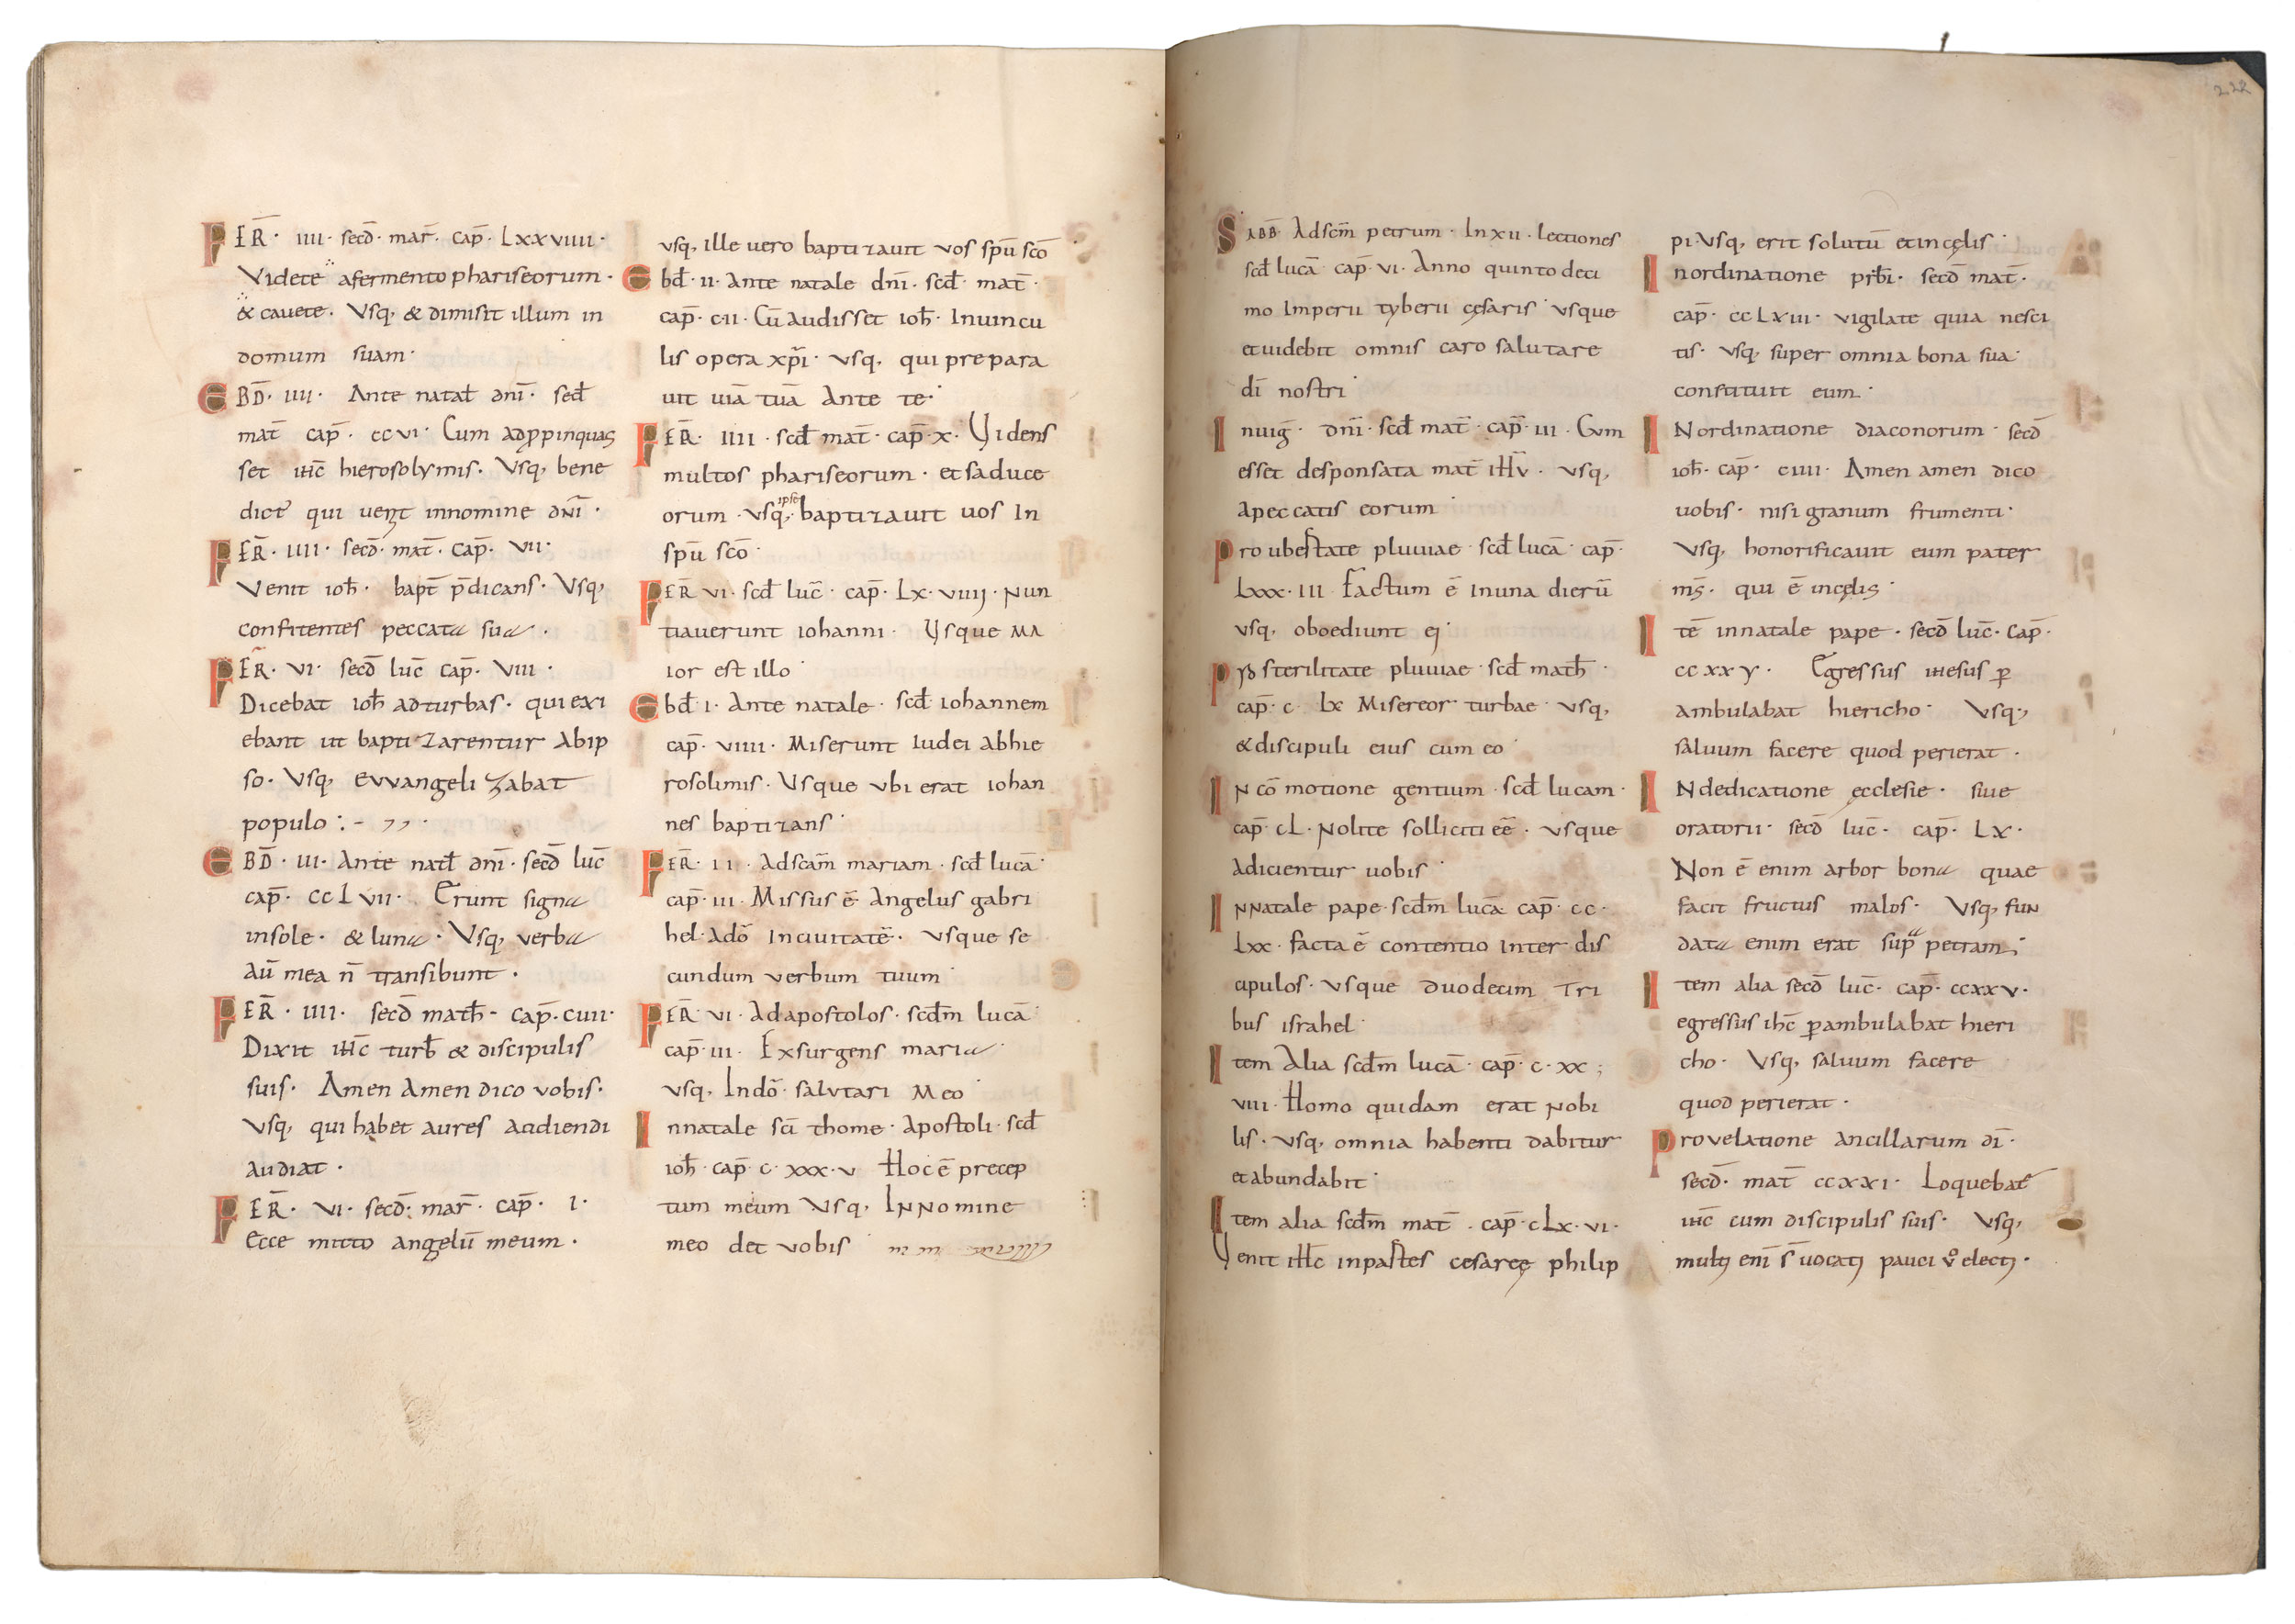 FER̄· IIII· secd̄· mar̄· cap̄· Lxxviiii·
Videte afermento phariseorum·
& cauete· Vsq; & dimisit illum in
domum suam·
EBD̄· IIII· Ante natal̄ dnī· secd̄
mat̄ cap̄· ccvi· Cum adp̱pinquas
set ihc̄ hierosolymis· Vsq; bene
dict᷒ qui uenit innomine dnī·
FER̄· IIII· secd̄· mat̄· cap̄· VII·
Venit ioh̄· bapt̄ p̄dicans· Vsq;
confitentes peccata sua·
FER̄· VI· secd̄ luc̄ cap̄· VIII·
Dicebat ioh̄ adturbas· qui exi
ebant ut baptizarentur abip
so· Vsq; evvangelizabat
populo :-
EBD̄· III· Ante natl̄ dnī· secd̄ luc̄
cap̄· ccLvii· Erunt signa
insole· & luna· Vsq; verba
aū mea n̄ transibunt·
FER̄· IIII· secd̄ math̄· cap̄· cvii·
Dixit ihc̄ turb̄ & discipulis
suis· Amen Amen dico vobis·
Vsq; qui habet aures audiendi
audiat·
FER̄· VI· secd̄· mar̄· cap̄· I·
Ecce mitto angelū meum·
vsq; ille uero baptizauit vos spū scō
Ebd̄· II· Ante natale dnī· scd̄· mat̄·
cap̄· cII· Cū audisset ioh̄· Inuincu
lis opera xp̄i· vsq; qui prepara
uit uiā tuā Ante te·
FER̄· IIII· scd̄ mat̄· cap̄· x· Videns
multos phariseorum· et saduce
orum· vsq; ipse baptizauit uos In
spū scō·
FER̄ VI· scd̄ luc̄· cap̄· Lx·viiij· Nun
tiauerunt iohanni· Vsque MA
ior est illo·
Ebd̄· I· Ante natale· scd̄· iohannem
cap̄· viiii· Miserunt Iudei abhie
rosolimis· Vsque vbi erat iohan
nes baptizans·
FER̄· II· Adscām mariam· scd̄ lucā·
cap̄· III· Missus ē Angelus gabri
hel· Adō Inciuitatē· vsque se
cundum verbum tuum·
FER̄· VI· Adapostolos· scd̄m lucā·
cap̄· III· Exsurgens maria·
vsq; Indō· salvtari Meo·
Innatale scī thome· Apostoli· scd̄
ioh̄· cap̄· c· xxx·v Hoc ē precep
tum meum Vsq; INNomine
meo det vobis·
SABB̄ Adscm̄ petrum· Inxii· lectiones
scd̄ lucā cap̄· vi· Anno quintodeci
mo Imperii tyberii cęsaris· vsque
etuidebit omnis caro salutare
dī nostri·
Inuig̅· dnī· scd̄ mat̄· cap̄· III· Cvm
esset desponsata mat̄ ihv̄· vsq;
Apeccatis eorum·
Pro ubestate pluuiae· scd̄ lucā· cap̄·
Lxxx·III· Factum ē Inuna dierū
vsq; oboediunt ej·
Pro sterilitate pluuiae· scd̄ math̄·
cap̄· c· Lx Misereor turbae· vsq;
& discipuli eius cum eo·
IN cōmotione gentium· scd̄ lucam·
cap̄· cL· Nolite solliciti eē· vsque
Adicientur uobis·
INNatale pape· scd̄m lucā cap̄· cc·
Lxx· facta ē contentio Inter dis
cipulos· vsque duodecim Tri
bus israhel·
Item Alia scd̄m lucā· cap̄· c·xx;
viii· Homo quidam erat Nobi
lis· vsq; omnia habenti dabitur
et abundabit·
Item alia scd̄m mat̄· cap̄· cLx·vi·
Venit ihc̄ inpartes cesareę philip
pi· Vsq; erit solutū et incęlis·
Inordinatione prb̄i· secd̄ mat̄·
cap̄· ccLxiii· vigilate quia nesci
tis· vsq; super omnia bona sua·
constituit eum·
INordinatione diaconorum· secd̄
ioh̄· cap̄· ciiii· Amen amen dico
uobis· nisi granum frumenti·
Vsq; honorificauit eum pater
ms̄· qui ē incęlis·
Itē innatale pape· secd̄ luc̄· cap̄·
ccxxv· Egressus ihesus ꝑ
ambulabat hiericho· Vsq;
saluum facere quod perierat·
INdedicatione ęcclesie· siue
oratorii· secd̄ luc̄· cap̄· Lx·
Non ē enim arbor bona quae
facit fructus malos· Vsq; fun
data enim erat sup̄a petram;
Item alia secd̄ luc̄· cap̄· ccxxv·
egressus ihc̄ ꝑambulabat hieri
cho· Vsq; saluum facere
quod perierat·
Provelatione ancillarum dī·
secd̄· mat̄ ccxxi· Loquebat᷒
ihc̄ cum discipulis suis· Vsq;
multj enī s̄ uocatj pauci v̊ electj·
222